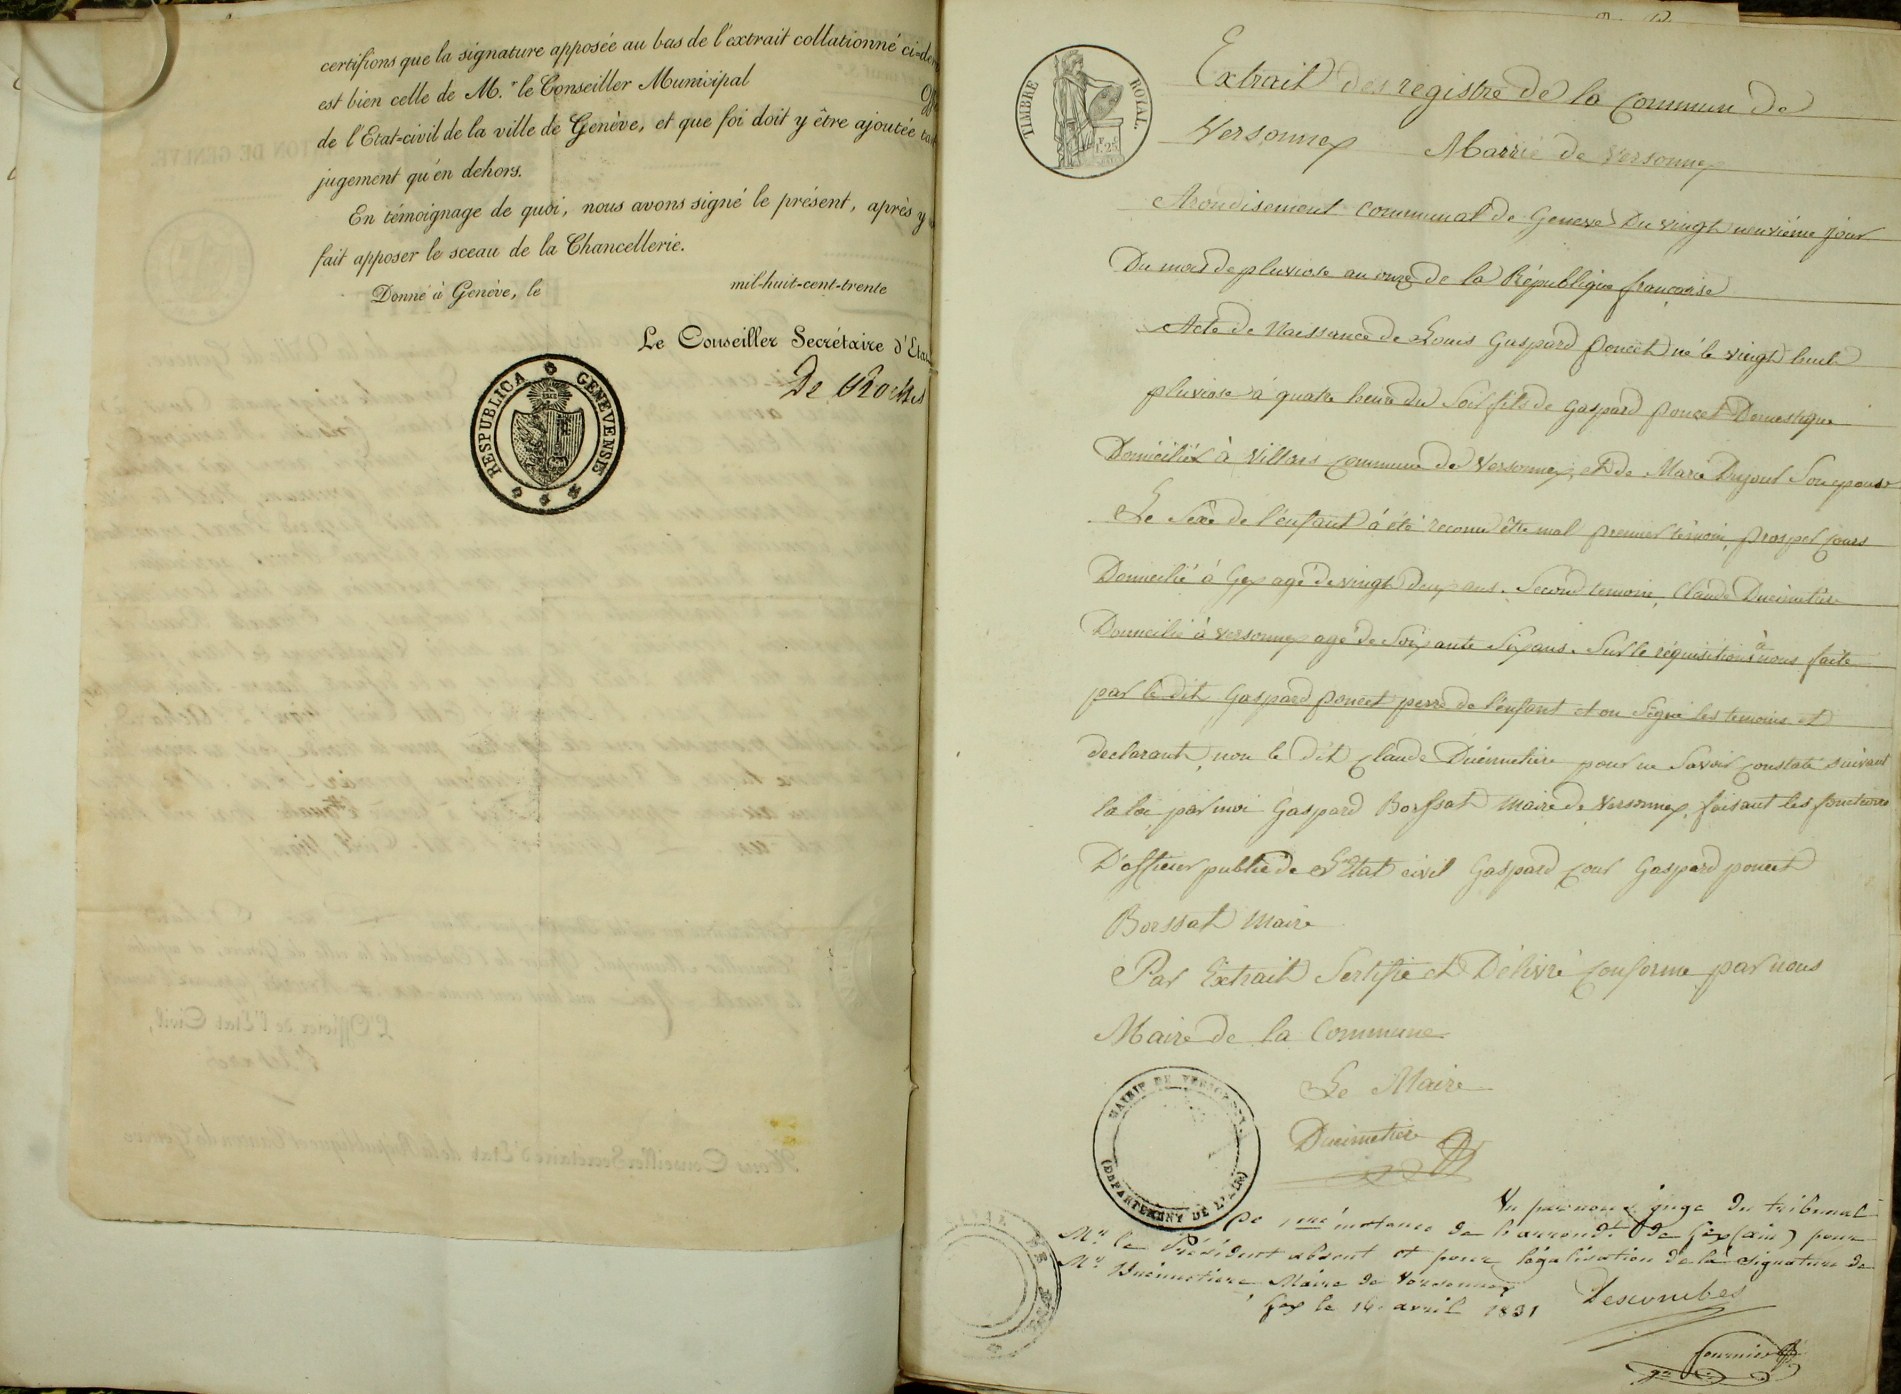 certifions que la signature apposée au bas de l'extrait collationné ci-de
est bien celle de M.r le Conseiller Municipal
de l'Etat-civil de la ville de Genève, et que foi doit y être ajoutée
jugement qu'en dehors.
En témoignage de quoi, nous avons signé le présent, après y
fait apposer le sceau de la Chancellerie.
Donné à Genève, le mil-huit-cent-trente
Le Conseiller Secrétaire d'Etat
De Roches
RESPUBLICA GENEVENSIS
TIMBRE ROYAL.
Extrait des registre de la Commun de
Versonnex Mairrie de Versonnex
Arondisement communal de Geneve Du vingt neuvième jour
Du mois de pluviose an onze de la République française
Acte de Naissance de Louis Gaspard poncet né le vingt huit
pluviose à quatre heure du Soir fils de Gaspard poncet Domestique
Domicilié à Villars commune de Versonnex, et de Marie Dupont Son epouse
Le Sexe de l'enfant à été reconu être mal premier témoin, prosper cours
Domicilié à Gex agé de vingt deux ans. Second temoin, Claude Ducimetière
Domicilié à Versonnex agé de Soixante Six ans. Sur le réquisition à nous faite
par le dit Gaspard poncet perre de l'enfant et on Signé les temoins et
declarant, non le dit Claude Ducimetière pour ne Savoir constaté suivant
la loi, par moi Gaspard Borssat Maire de Versonnex, faisant les fonctions
D'officier public de L'Etat civil Gaspard cour Gaspard poncet
Borssat Maire
Par Extrait Sertifié et Délivré conforme par nous
Maire de la Commune
Le Maire
Ducimetière
MAIRIE DE VERSONNEX
(DÉPARTEMENT DE L'AIN)
Vu par nous juge du tribunal
De 1ere instance de l'arrondt de Gex (ain) pour
Mr le Président absent et pour légalisation de la signature de
Mr Ducimetiere Maire de Versonnex
Gex le 14 avril 1831 Descombes
fournier